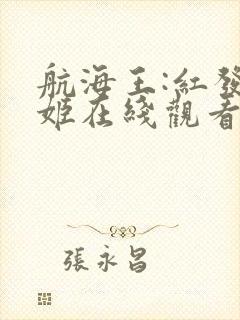 航海王:紅發
姬在綫觀看
張永昌